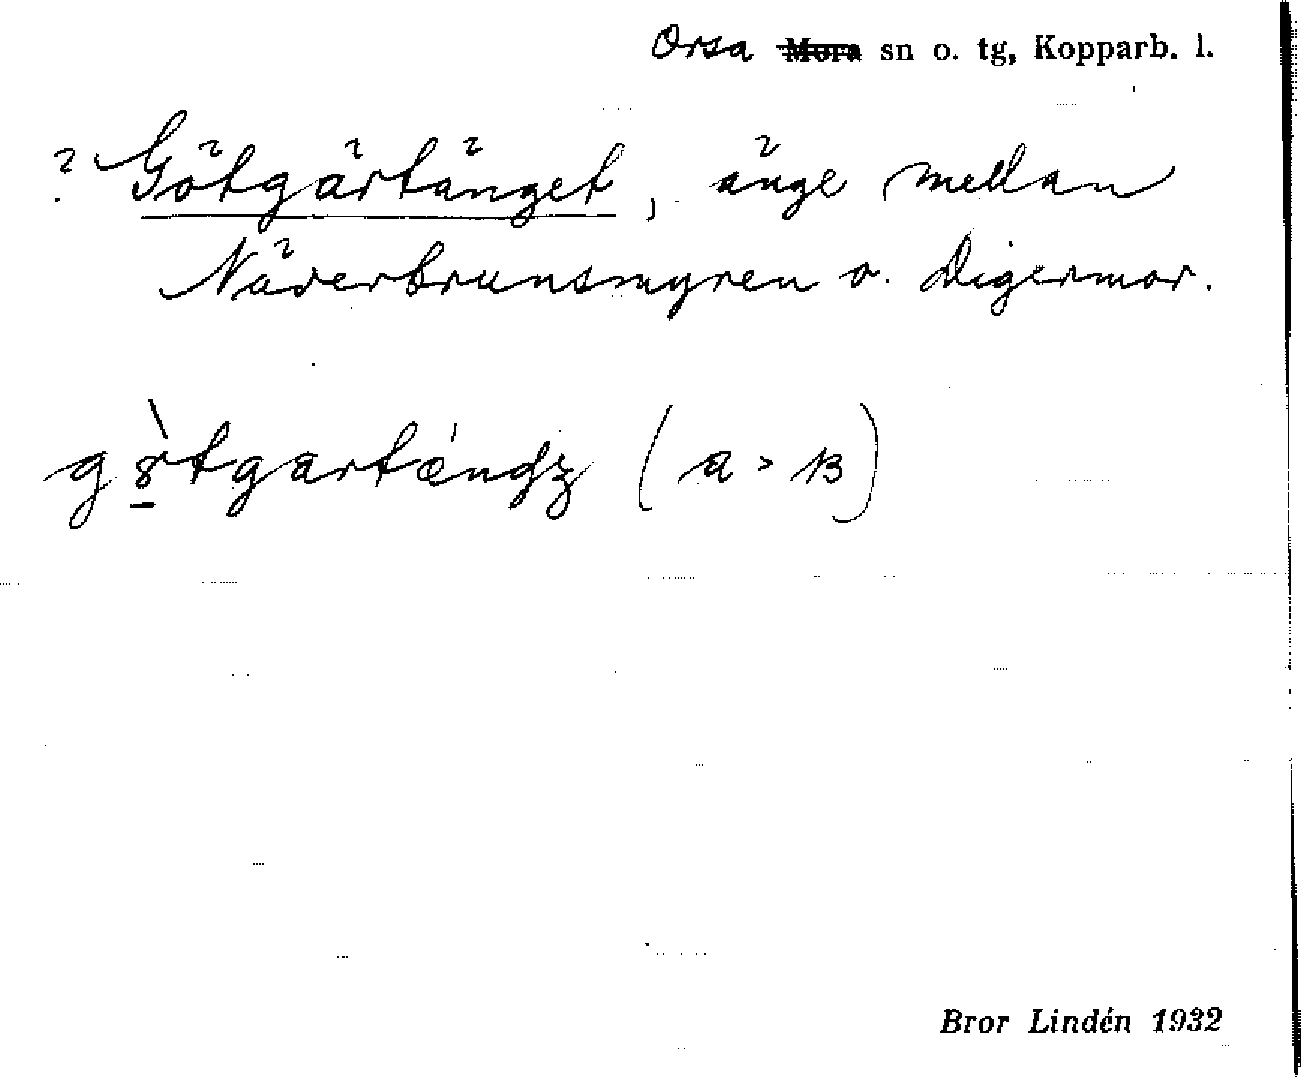 Orsa Mora sn o. tg, Kopparb. l.
? Götgärtänget, änge mellan
Näverbrunsmyren o. Digermor.
gȣ̀tgartǽndʒ (a > B)
Bror Lindén 1932